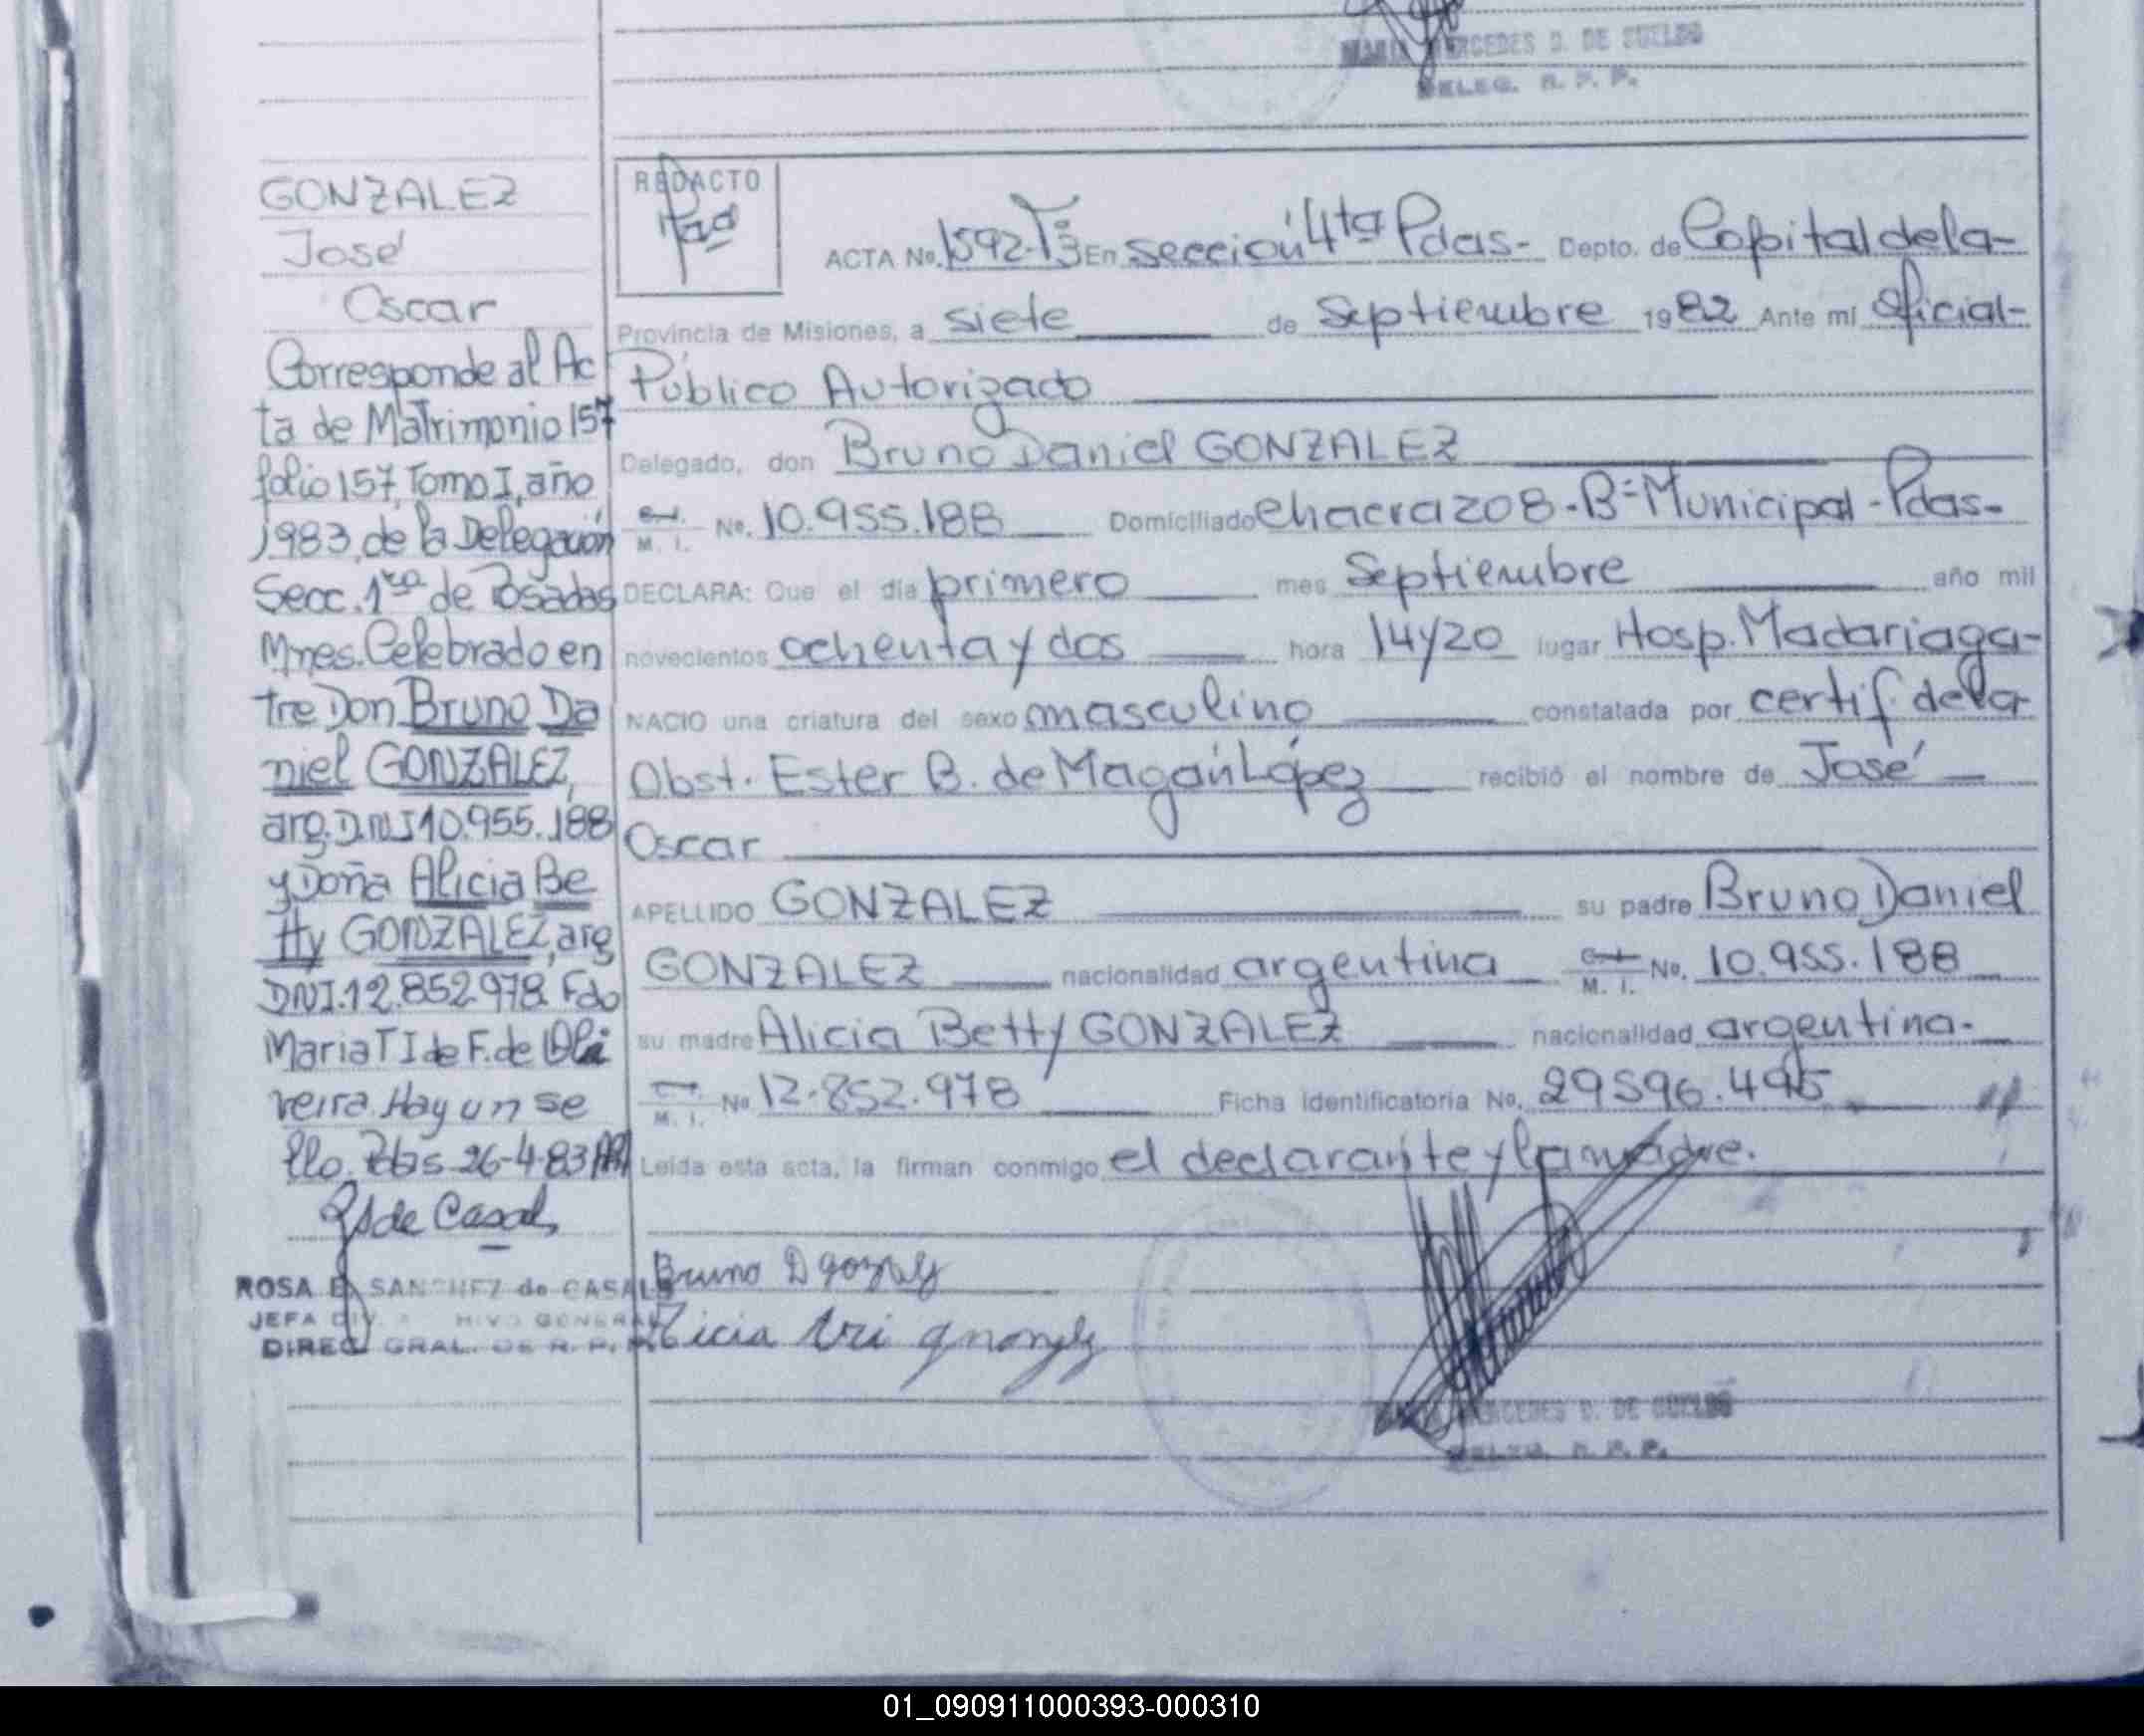 MARIA MERCEDES D. DE SUELDO
DELEG. R. P. P.
GONZALEZ
José
Oscar
Corresponde al Ac
ta de Matrimonio 157
folio 157, Tomo I, año
1983, de la Delegación
Secc. 1ra de Posadas
Mnes. Celebrado en
tre Don Bruno Da
niel GONZALEZ,
arg. D.N.I 10.955.188
y Doña Alicia Be
tty GONZALEZ, arg
DNI. 12.852.978. Fdo
Maria T I de F. de Oli
veira. Hay un se
llo. Pdas 26-4-83
R S de Casals
ROSA E. SANCHEZ de CASALS
JEFA DIV. ARCHIVO GENERAL
DIREC. GRAL. DE R. P. P.
REDACTO
ACTA No. 1592-Tº3 En sección 4ta Pdas- Depto. de Capital de la-
Provincia de Misiones, a siete de Septiembre 1982 Ante mi Oficial-
Público Autorizado
Delegado, don Bruno Daniel GONZALEZ
M. I. No. 10.955.188 Domiciliado Chacra 208-Bº Municipal-Pdas-
DECLARA: Que el día primero mes Septiembre año mil
novecientos ochenta y dos hora 14y20 lugar Hosp. Madariaga-
NACIO una criatura del sexo masculino constatada por certif. de la
Obst. Ester B. de Magán López recibió el nombre de José
Oscar
APELLIDO GONZALEZ su padre Bruno Daniel
GONZALEZ nacionalidad argentina M. I. No. 10.955.188
su madre Alicia Betty GONZALEZ nacionalidad argentina.
M. I. No 12.852.978 Ficha Identificatoria No. 29596.495
Leída esta acta, la firman conmigo el declarante y la madre.
Bruno D
MARIA MERCEDES D. DE SUELDO
DELEG. R. P. P.
01_090911000393-000310